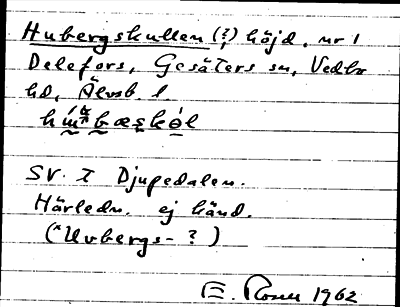 Hubergskullen (?) höjd, nr 1
Delefors, Gesäters sn, Vedbo
hd, Älvsb. l.
SV. I Djupedalen.
Härledn. ej känd.
(*Uvbergs- ?)
E. 1962